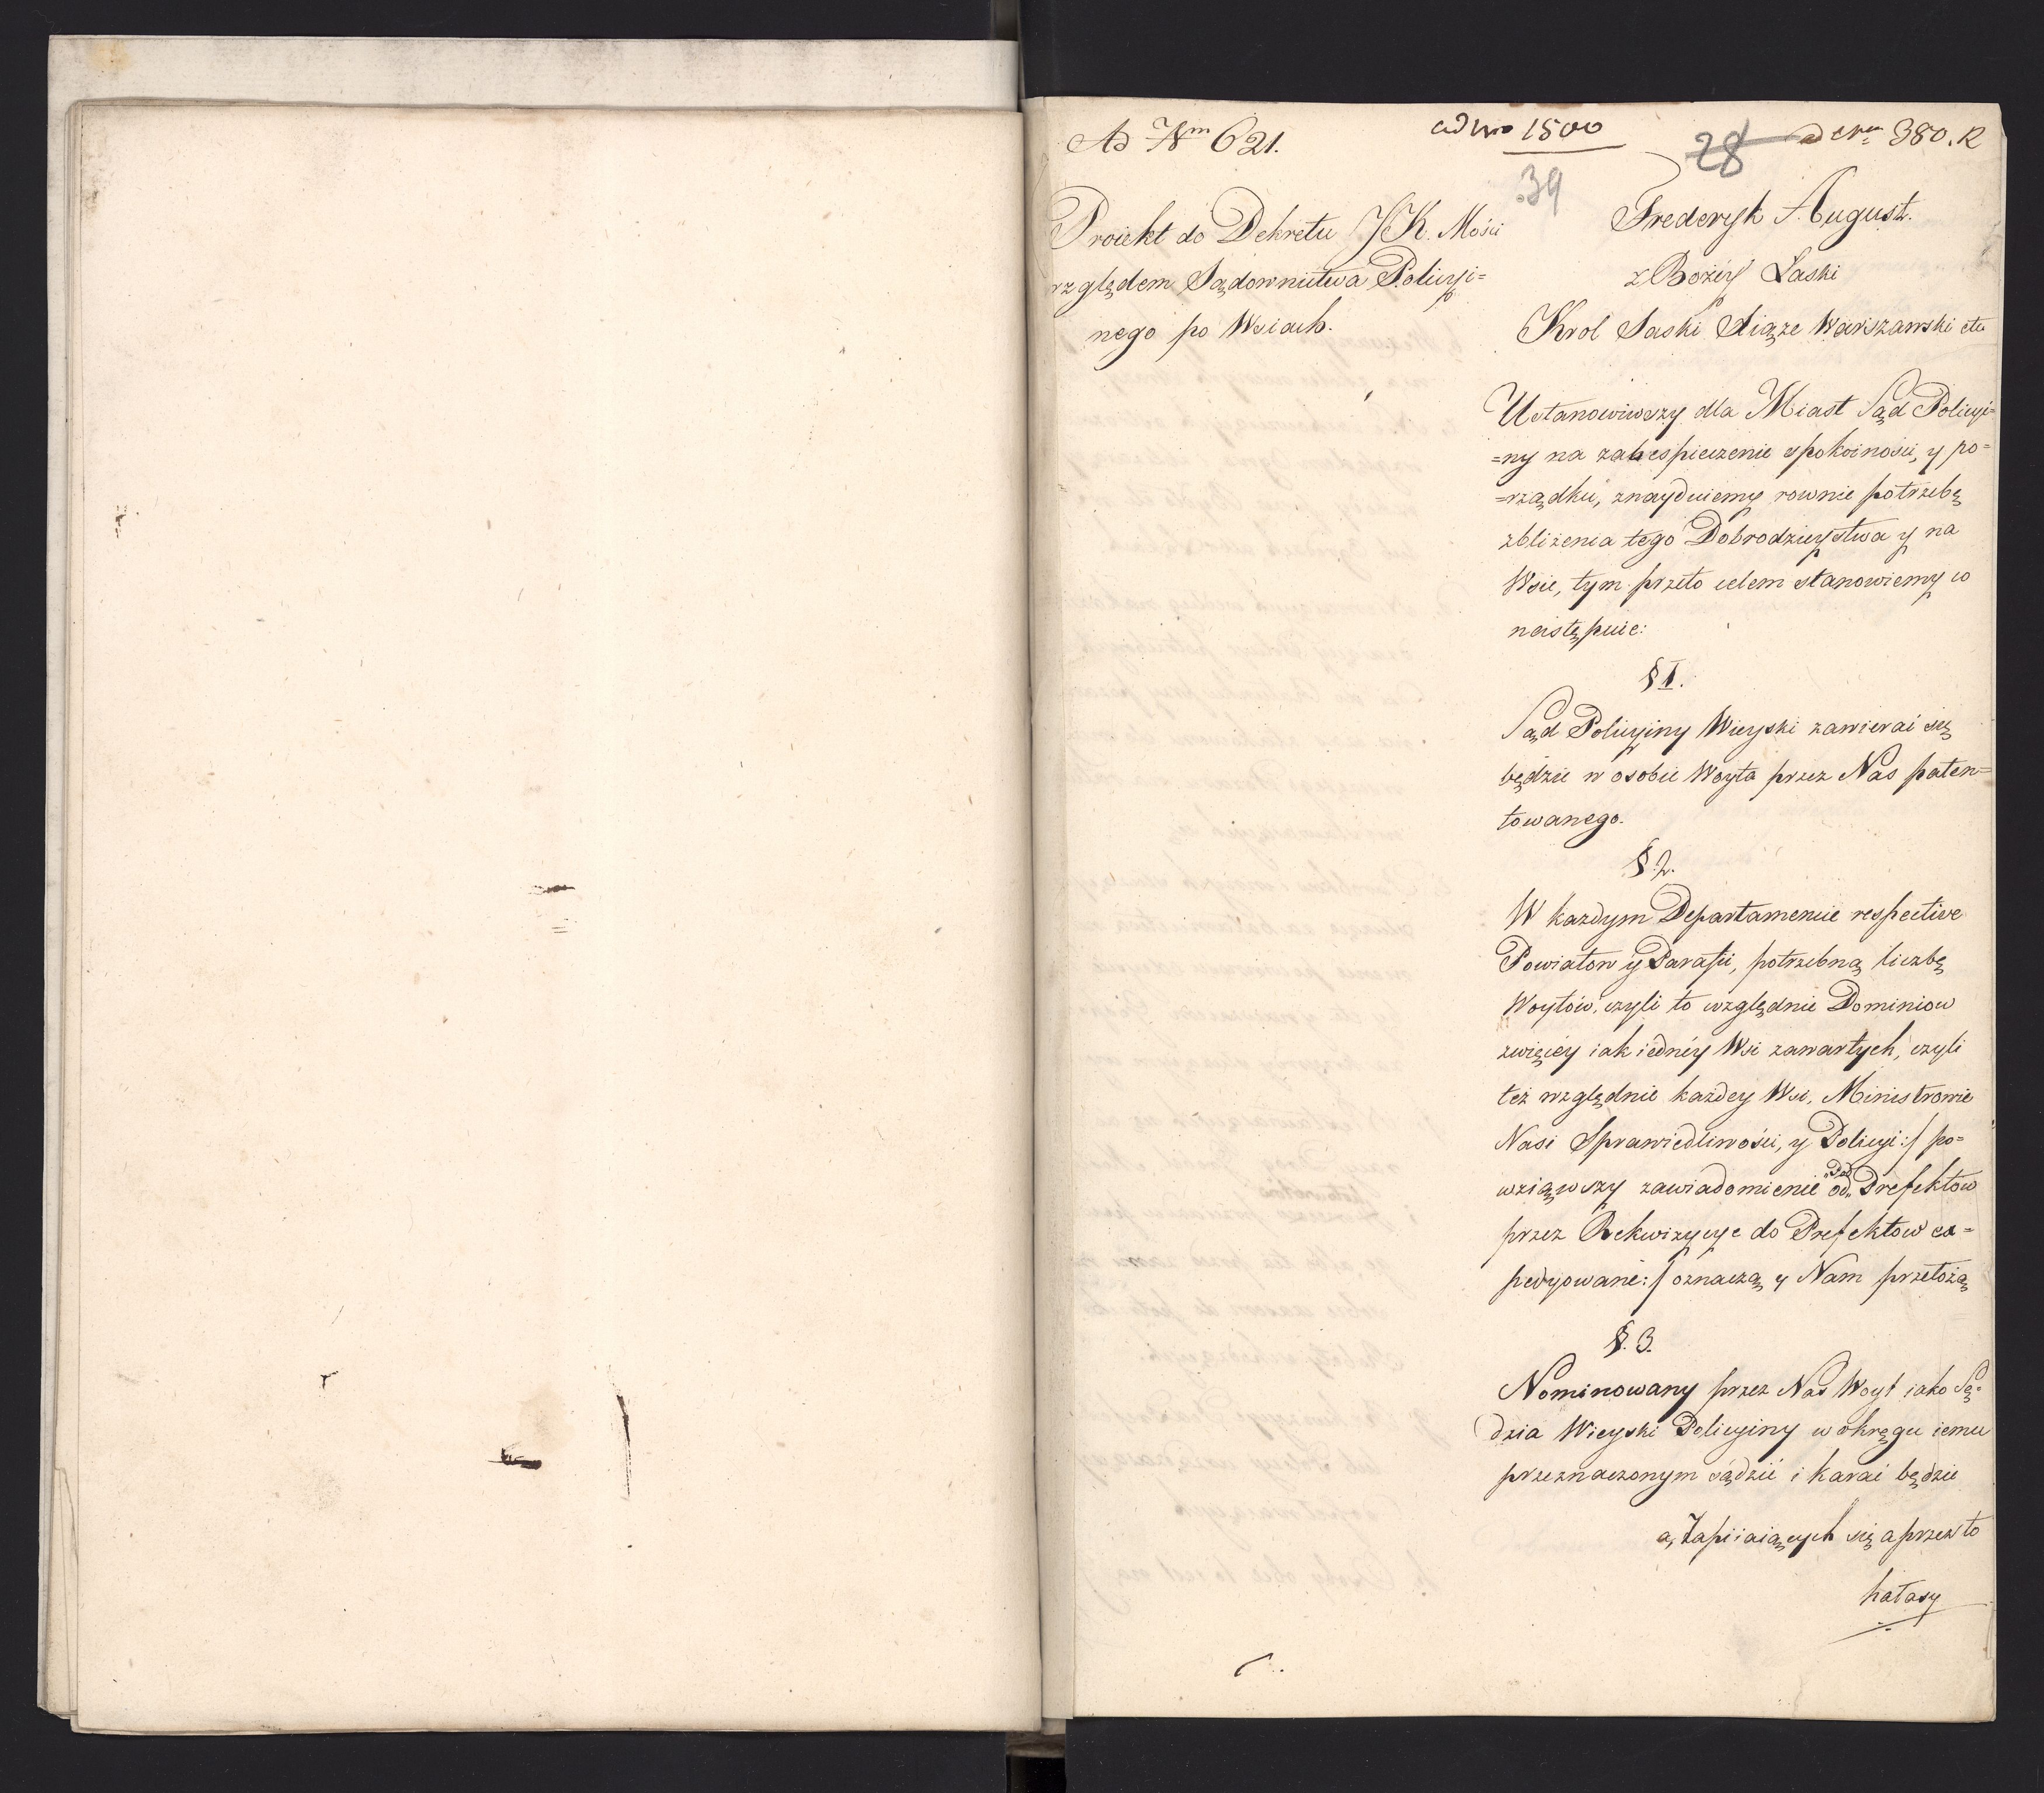 Ad Nm 621.
ad Nro 1500
28
ad Nrm 380. R
39
Proiekt do Dekretu JK. Mości
względem Sądownictwa Policyi=
nego po Wsiach.
Frederyk August.
z Bożéy Łaski
Krol Saski Xiąże Warszawski etc
Ustanowiwszy dla Miast Sąd Policyi=
=ny na zabespieczenie spokoiności, y po=
=rządku, znayduiemy rownie potrzebę
zbliżenia tego Dobrodzieystwa y na
Wsie, tym przeto celem stanowiemy co
następuie:
§ I.
Sąd Policyiny Wieyski zawierać się
będzie w osobie Woyta przez Nas paten=
towanego.
§. 2.
W każdym Departamencie respective
Powiatow y Parafii, potrzebną liczbę
Woytów, czyli to względnie Dominiow
zwięcéy iak iednéy Wsi zawartych, czyli
też względnie każdey Wsi, Ministrowie
Nasi Sprawiedliwości, y Policyi :/ po=
wziąwszy zawiadomienie od Pod Prefektow
przez Rekwizycye do Prefektow ex=
pedyowane :/ oznaczą y Nam przełożą
§. 3.
Nominowany przez Nas Woyt iako Sę=
dzia Wieyski Policyiny w okręgu iemu
przeznaczonym sądzić i karać będzie
a, Zapiiaiących się a przez to
hałasy